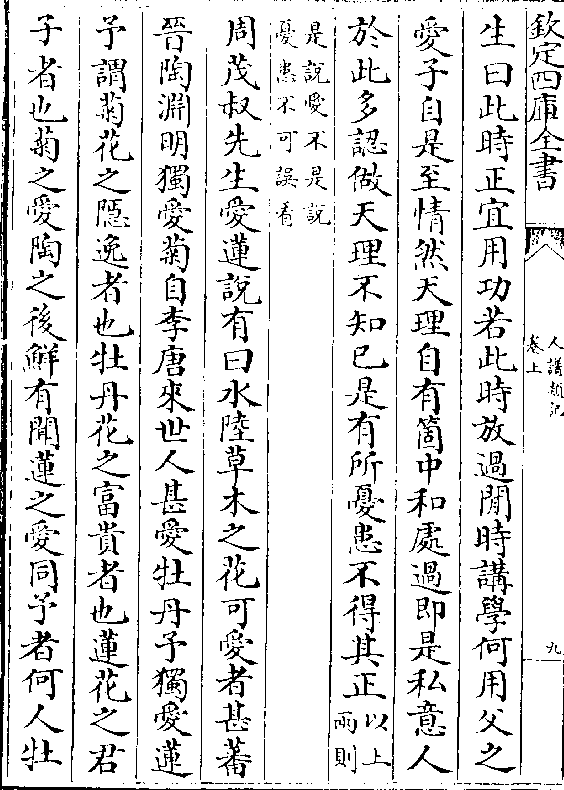 欽定四庫全書
人譜類記
卷上
九
生曰此時正宜用功若此時放過閒時講學何用父之
愛子自是至情然天理自有箇中和處過即是私意人
於此多認做天理不知已是有所憂患不得其正以上
兩則
是說愛不是説
憂患不可誤看
周茂叔先生愛蓮說有曰水陸草木之花可愛者甚蕃
晉陶淵明獨愛菊自李唐來世人甚愛牡丹予獨愛蓮
予謂菊花之隱逸者也牡丹花之富貴者也蓮花之君
子者也菊之愛陶之後鮮有聞蓮之愛同予者何人牡